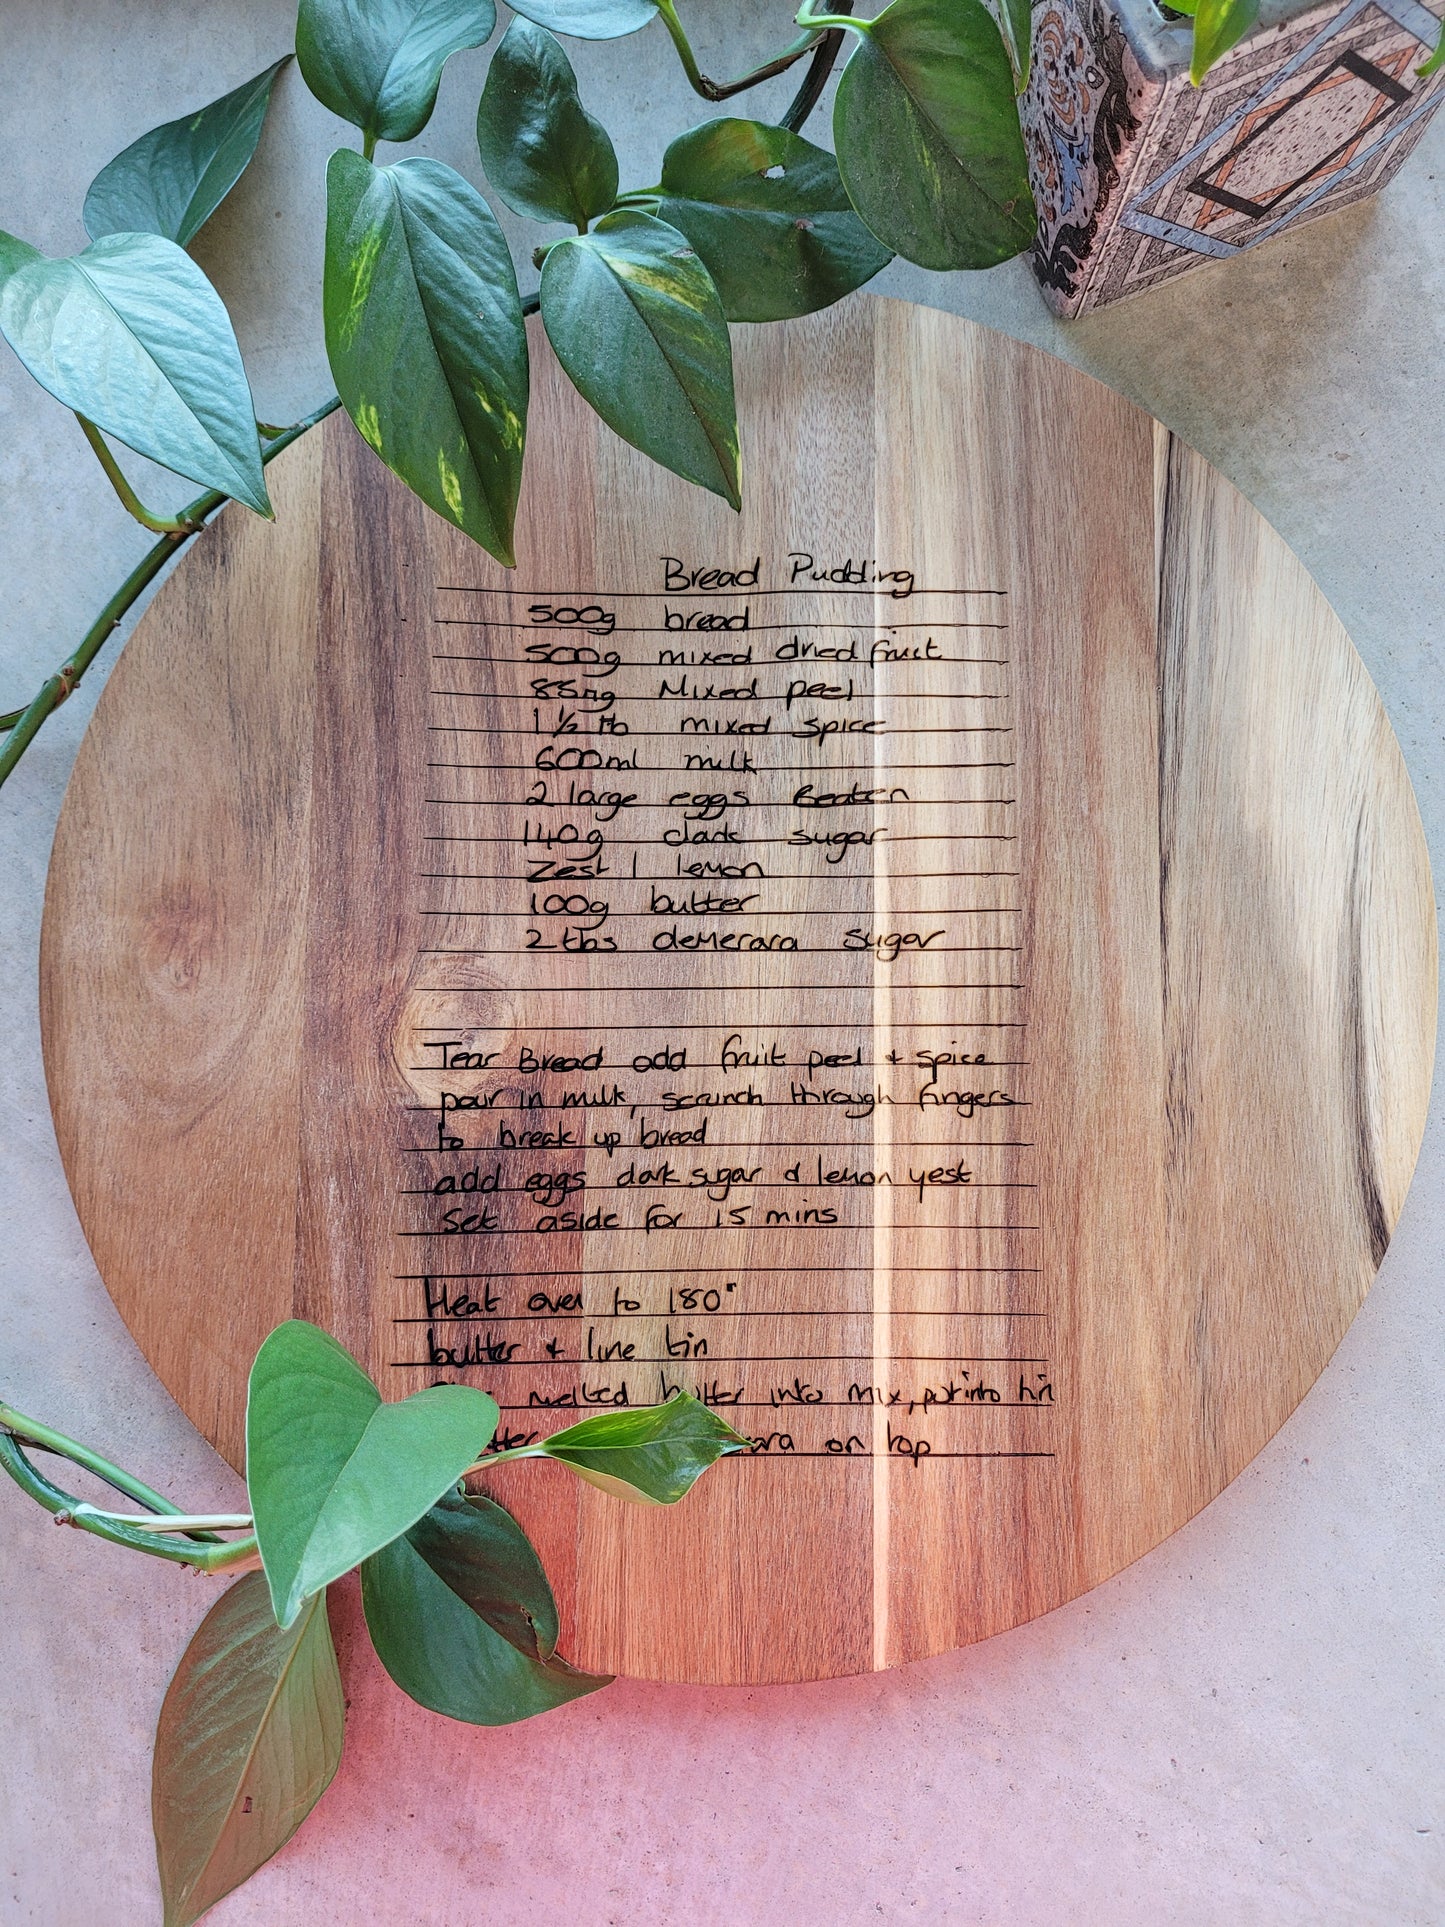 Bread Pudding
500g bread
500g mixed dried fruit
85mg Mixed peel
1 1/2 tb mixed spice
600ml milk
2 large eggs Beaten
140g dark sugar
Zest 1 lemon
100g butter
2 tbs demerara sugar
Tear Bread add fruit peel & spice
pour in milk, scrunch through fingers
to break up bread
add eggs dark sugar & lemon yest
Set aside for 15 mins
Heat oven to 180°
butter & line tin
melted butter into mix, put into tin
on top